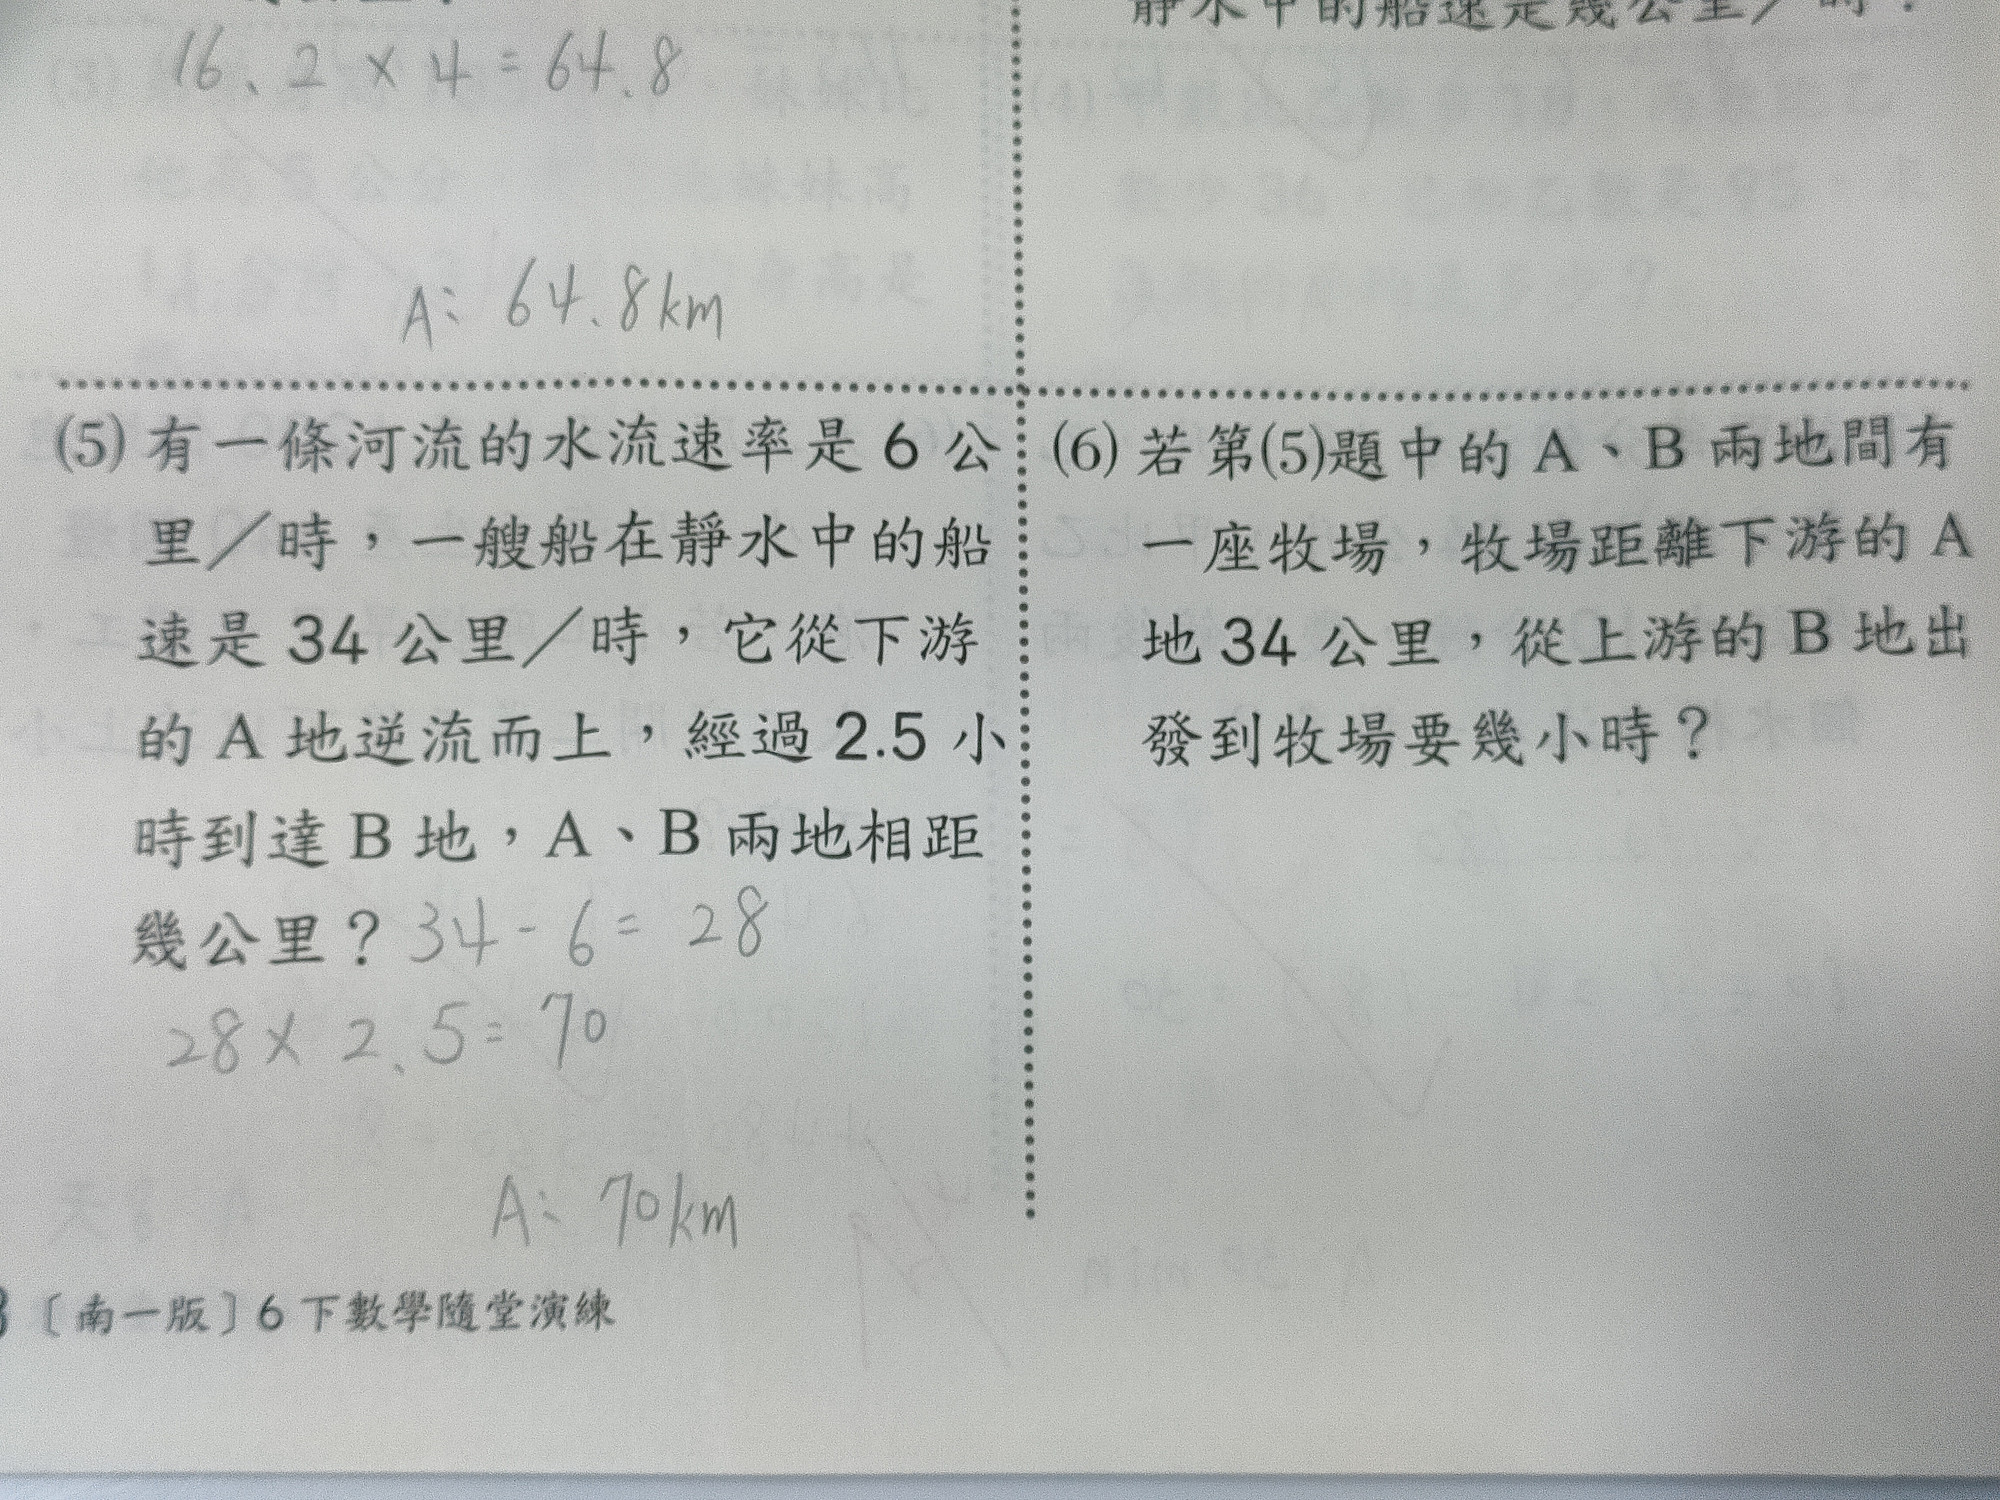 16.2 × 4 = 64.8
A: 64.8km
靜水中的船速是幾公里／時？
(5) 有一條河流的水流速率是 6 公
里／時，一艘船在靜水中的船
速是 34 公里／時，它從下游
的 A 地逆流而上，經過 2.5 小
時到達 B 地，A、B 兩地相距
幾公里？ 34 - 6 = 28
28 × 2.5 = 70
A: 70km
(6) 若第(5)題中的 A、B 兩地間有
一座牧場，牧場距離下游的 A
地 34 公里，從上游的 B 地出
發到牧場要幾小時？
〔南一版〕6 下數學隨堂演練